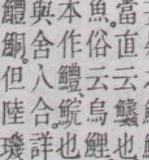 當直云也
魚。俗云烏鯉
本作鱧。鯇也
與舍人合。詳
鱧鮦但陸璣